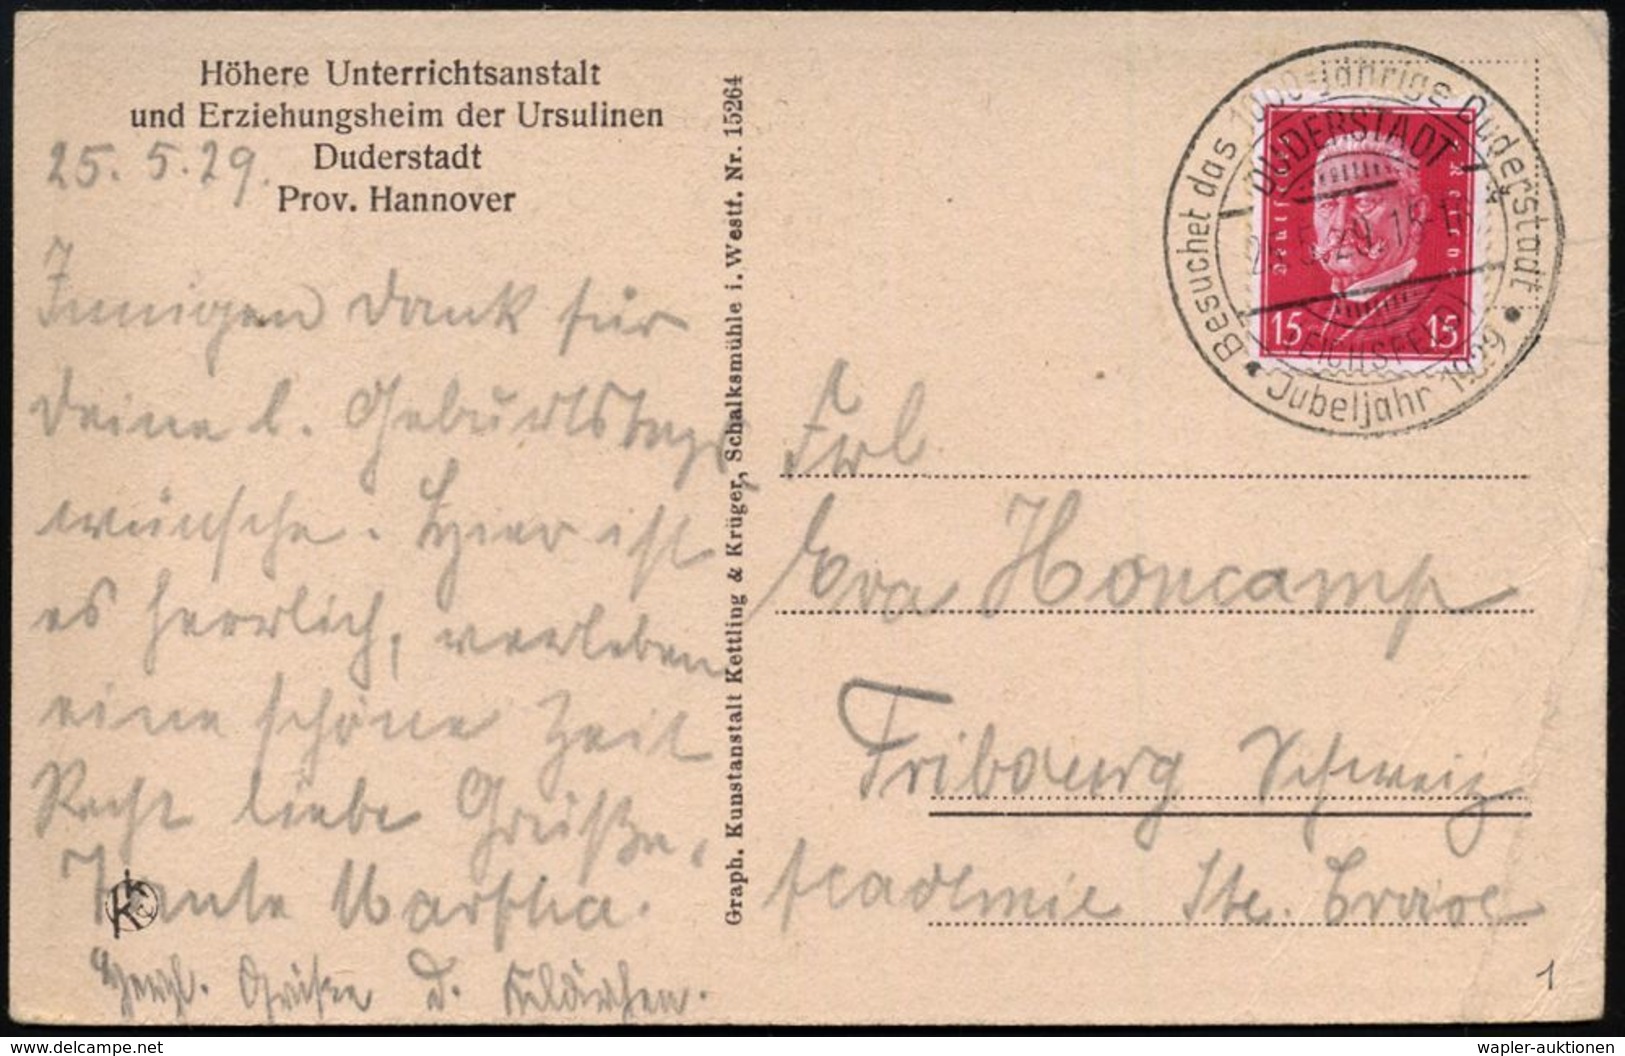 Höhere Unterrichtsanstalt
und Erziehungsheim der Ursulinen
Duderstadt
Prov. Hannover
25. 5. 29.
Innigen Dank für
Deine l. Geburtstags
wünsche. Hier ist
es herrlich, verleben
eine schöne Zeit
Recht liebe Grüße,
Tante Martha.
Herzl. Grüße D. Klärchen.
Graph. Kunstanstalt Kettling & Krüger, Schalksmühle i. Westf. Nr. 15264
Besuchet das 1000-jährige Duderstadt
Jubeljahr 1929
DUDERSTADT
(EICHSFELD)
Deutsches Reich
15 15
Frl
Eva Honcamp
Fribourg Schweiz
Academie Ste. Croix
1
delcampe.net
wapler-auktionen